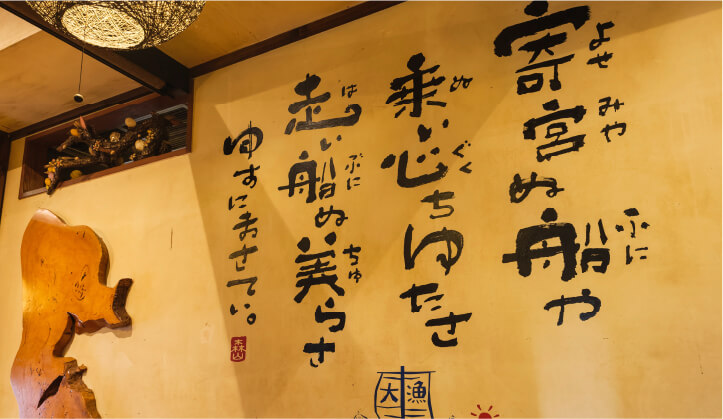 よせ みや ふに
寄宮ぬ船や
ぬ ぐく
乗い心ちゆたさ
は ぶに ちゅ
走い船ぬ美らさ
ゆすにまさてい。
森山
大漁